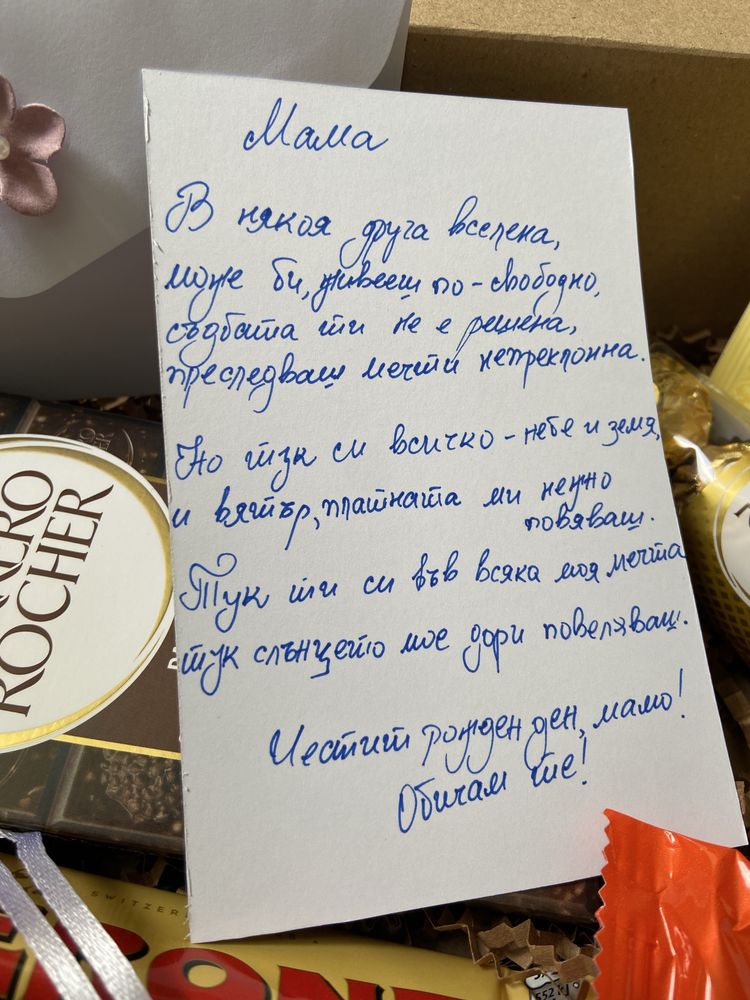 Мама
В някоя друга вселена,
може би, живееш по-свободно,
съдбата ти не е решена,
преследваш мечти непреклонна.
Но тук си всичко - небе и земя,
и вятър, платната ми нежно
повяваш.
Тук ти си във всяка моя мечта
тук слънцето мое дори повеляваш.
Честит рожден ден, мамо!
Обичам те!
ROCHER
SWITZER